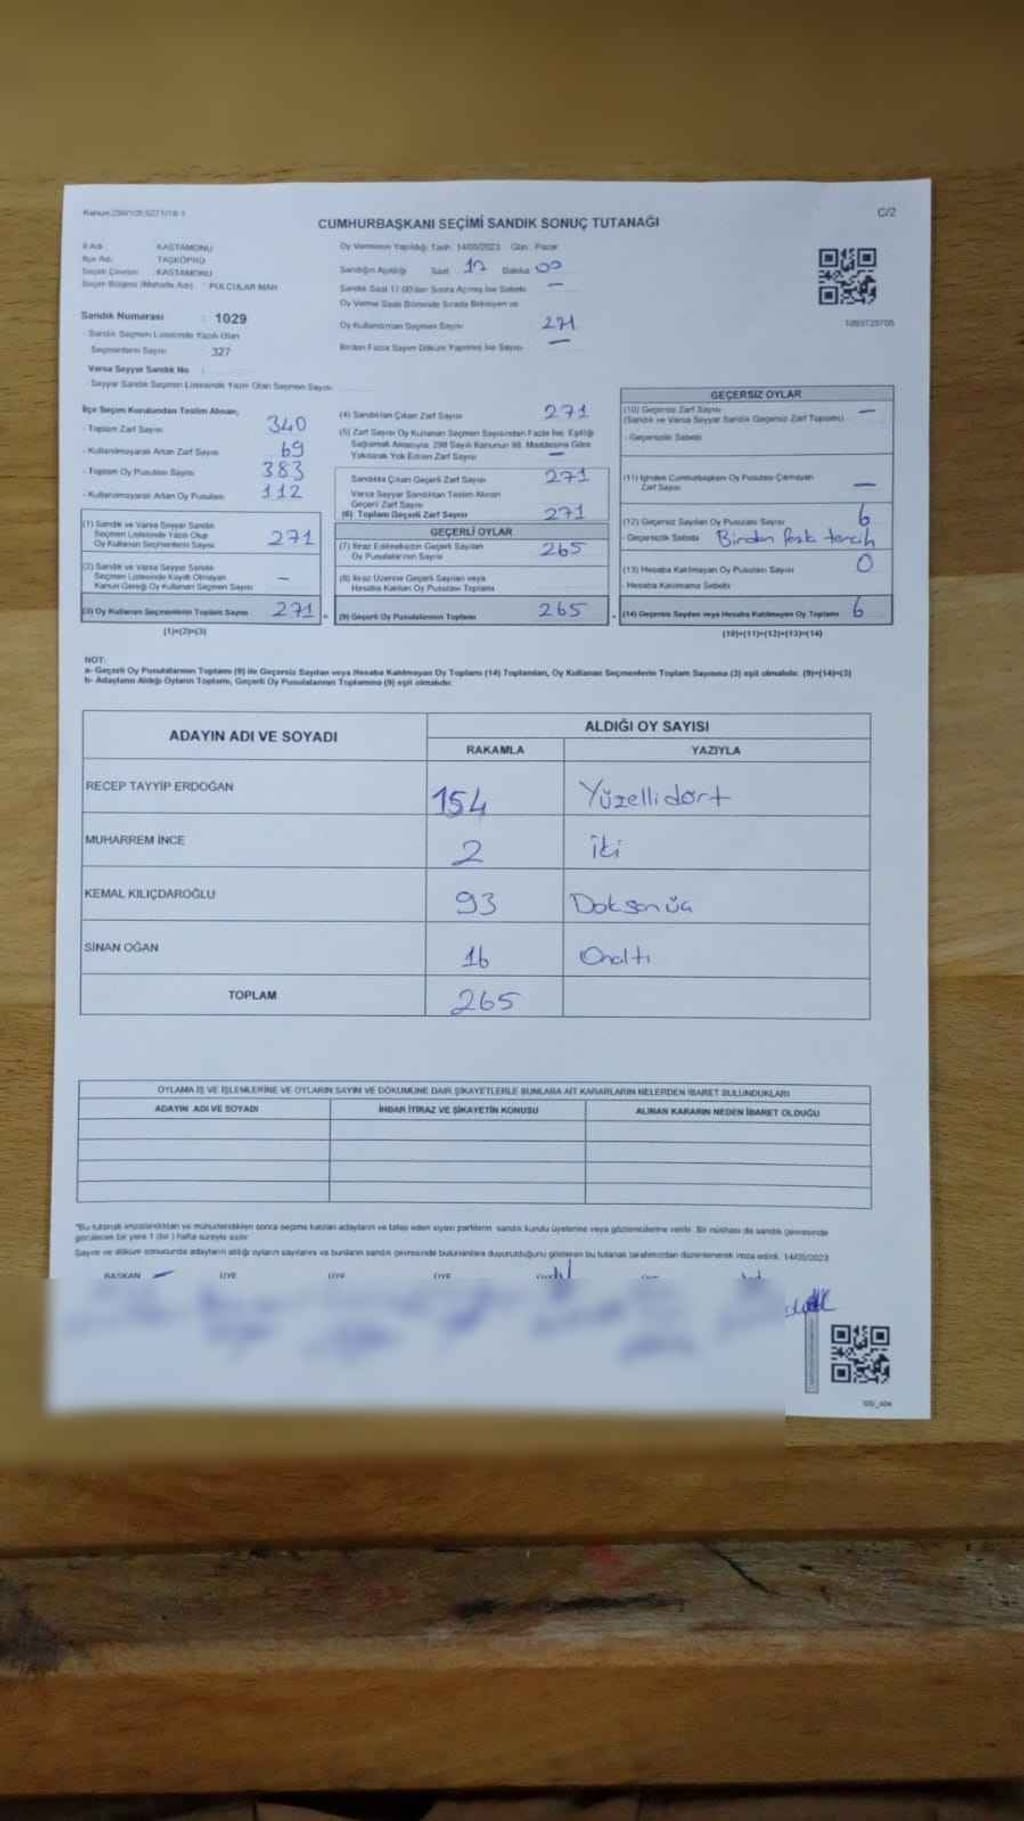 C/2
CUMHURBAŞKANI SEÇİMİ SANDIK SONUÇ TUTANAĞI
İl Adı : KASTAMONU
İlçe Adı : TAŞKÖPRÜ
Seçim Çevresi : KASTAMONU
Seçim Bölgesi (Mahalle Adı) : PULCULAR MAH
Oy Vermenin Yapıldığı Tarih: 14/05/2023 Gün: Pazar
Sandığın Açıldığı Saat 17 Dakika 00
Sandık Saat 17:00'den Sonra Açılmış İse Sebebi —
Oy Verme Saati Bitiminde Sırada Bekleyen ve
Oy Kullandırılan Seçmen Sayısı 271
Birden Fazla Sayım Döküm Yapılmış İse Sayısı —
Sandık Numarası : 1029
Sandık Seçmen Listesinde Yazılı Olan
Seçmenlerin Sayısı 327
Varsa Seyyar Sandık No :
Seyyar Sandık Seçmen Listesinde Yazılı Olan Seçmen Sayısı
İlçe Seçim Kurulundan Teslim Alınan;
- Toplam Zarf Sayısı 340
- Kullanılmayarak Artan Zarf Sayısı 69
- Toplam Oy Pusulası Sayısı 383
- Kullanılmayarak Artan Oy Pusulası 112
(1) Sandık ve Varsa Seyyar Sandık
Seçmen Listesinde Yazılı Olup
Oy Kullanan Seçmenlerin Sayısı 271
(2) Sandık ve Varsa Seyyar Sandık
Seçmen Listesinde Kayıtlı Olmayan
Kanun Gereği Oy Kullanan Seçmen Sayısı –
(3) Oy Kullanan Seçmenlerin Toplam Sayısı 271
(1)+(2)=(3)
(4) Sandıktan Çıkan Zarf Sayısı 271
(5) Zarf Sayısı Oy Kullanan Seçmen Sayısından Fazla İse, Eşitliği
Sağlamak Amacıyla, 298 Sayılı Kanunun 98. Maddesine Göre
Yakılarak Yok Edilen Zarf Sayısı —
Sandıkta Çıkan Geçerli Zarf Sayısı 271
Varsa Seyyar Sandıktan Teslim Alınan
Geçerli Zarf Sayısı
(6) Toplam Geçerli Zarf Sayısı 271
GEÇERLİ OYLAR
(7) İtiraz Edilmeksizin Geçerli Sayılan
Oy Pusulalarının Sayısı 265
(8) İtiraz Üzerine Geçerli Sayılan veya
Hesaba Katılan Oy Pusulası Toplamı
(9) Geçerli Oy Pusulalarının Toplamı 265
GEÇERSİZ OYLAR
(10) Geçersiz Zarf Sayısı —
(Sandık ve Varsa Seyyar Sandık Geçersiz Zarf Toplamı)
- Geçersizlik Sebebi
(11) İçinden Cumhurbaşkanı Oy Pusulası Çıkmayan
Zarf Sayısı —
(12) Geçersiz Sayılan Oy Pusulası Sayısı 6
- Geçersizlik Sebebi Birden fazla tercih
(13) Hesaba Katılmayan Oy Pusulası Sayısı 0
- Hesaba Katılmama Sebebi
(14) Geçersiz Sayılan veya Hesaba Katılmayan Oy Toplamı 6
(10)+(11)+(12)+(13)=(14)
NOT:
a- Geçerli Oy Pusulalarının Toplamı (9) ile Geçersiz Sayılan veya Hesaba Katılmayan Oy Toplamı (14) Toplamları, Oy Kullanan Seçmenlerin Toplam Sayısına (3) eşit olmalıdır. (9)+(14)=(3)
b- Adayların Aldığı Oyların Toplamı, Geçerli Oy Pusulalarının Toplamına (9) eşit olmalıdır.
ADAYIN ADI VE SOYADI
ALDIĞI OY SAYISI
RAKAMLA YAZIYLA
RECEP TAYYİP ERDOĞAN 154 Yüzellidört
MUHARREM İNCE 2 iki
KEMAL KILIÇDAROĞLU 93 Doksanüç
SİNAN OĞAN 16 Onaltı
TOPLAM 265
OYLAMA İŞ VE İŞLEMLERİNE VE OYLARIN SAYIM VE DÖKÜMÜNE DAİR ŞİKAYETLERLE BUNLARA AİT KARARLARIN NELERDEN İBARET BULUNDUKLARI
ADAYIN ADI VE SOYADI İHBAR İTİRAZ VE ŞİKAYETİN KONUSU ALINAN KARARIN NEDEN İBARET OLDUĞU
"Bu tutanak imzalandıktan ve mühürlendikten sonra seçime katılan adayların ve talep eden siyasi partilerin sandık kurulu üyelerine veya gözlemcilerine verilir. Bir nüshası da sandık çevresinde
görülecek bir yere 1 (bir) hafta süreyle asılır.
Sayım ve döküm sonucunda adayların aldığı oyların sayılarını ve bunların sandık çevresinde bulunanlara duyurulduğunu gösteren bu tutanak tarafımızdan düzenlenerek imza edildi. 14/05/2023
BAŞKAN ÜYE ÜYE ÜYE